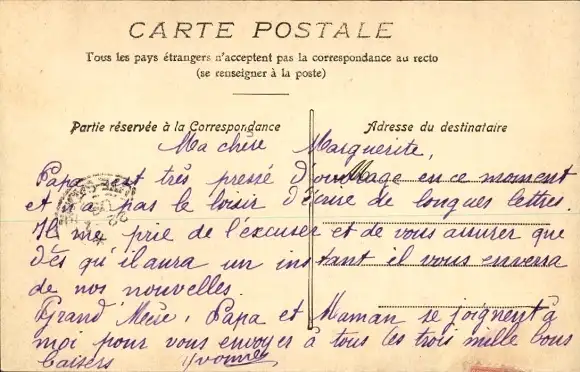 CARTE POSTALE
Tous les pays étrangers n'acceptent pas la correspondance au recto
(se renseigner à la poste)
Partie réservée à la Correspondance
Adresse du destinataire
Ma chère Marguerite,
Papa est très pressé d'ouvrage en ce moment
et n'a pas le loisir d'écrire de longues lettres.
Il me prie de l'excuser et de vous assurer que
dès qu'il aura un instant il vous enverra
de nos nouvelles.
Grand' Mère, Papa et Maman se joignent à
moi pour vous envoyer à tous les trois mille bons
baisers Yvonne